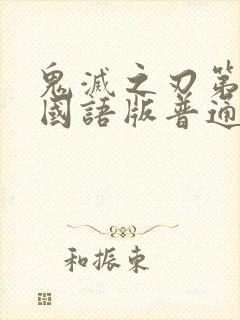 鬼滅之刃第
國語版普通
和振東